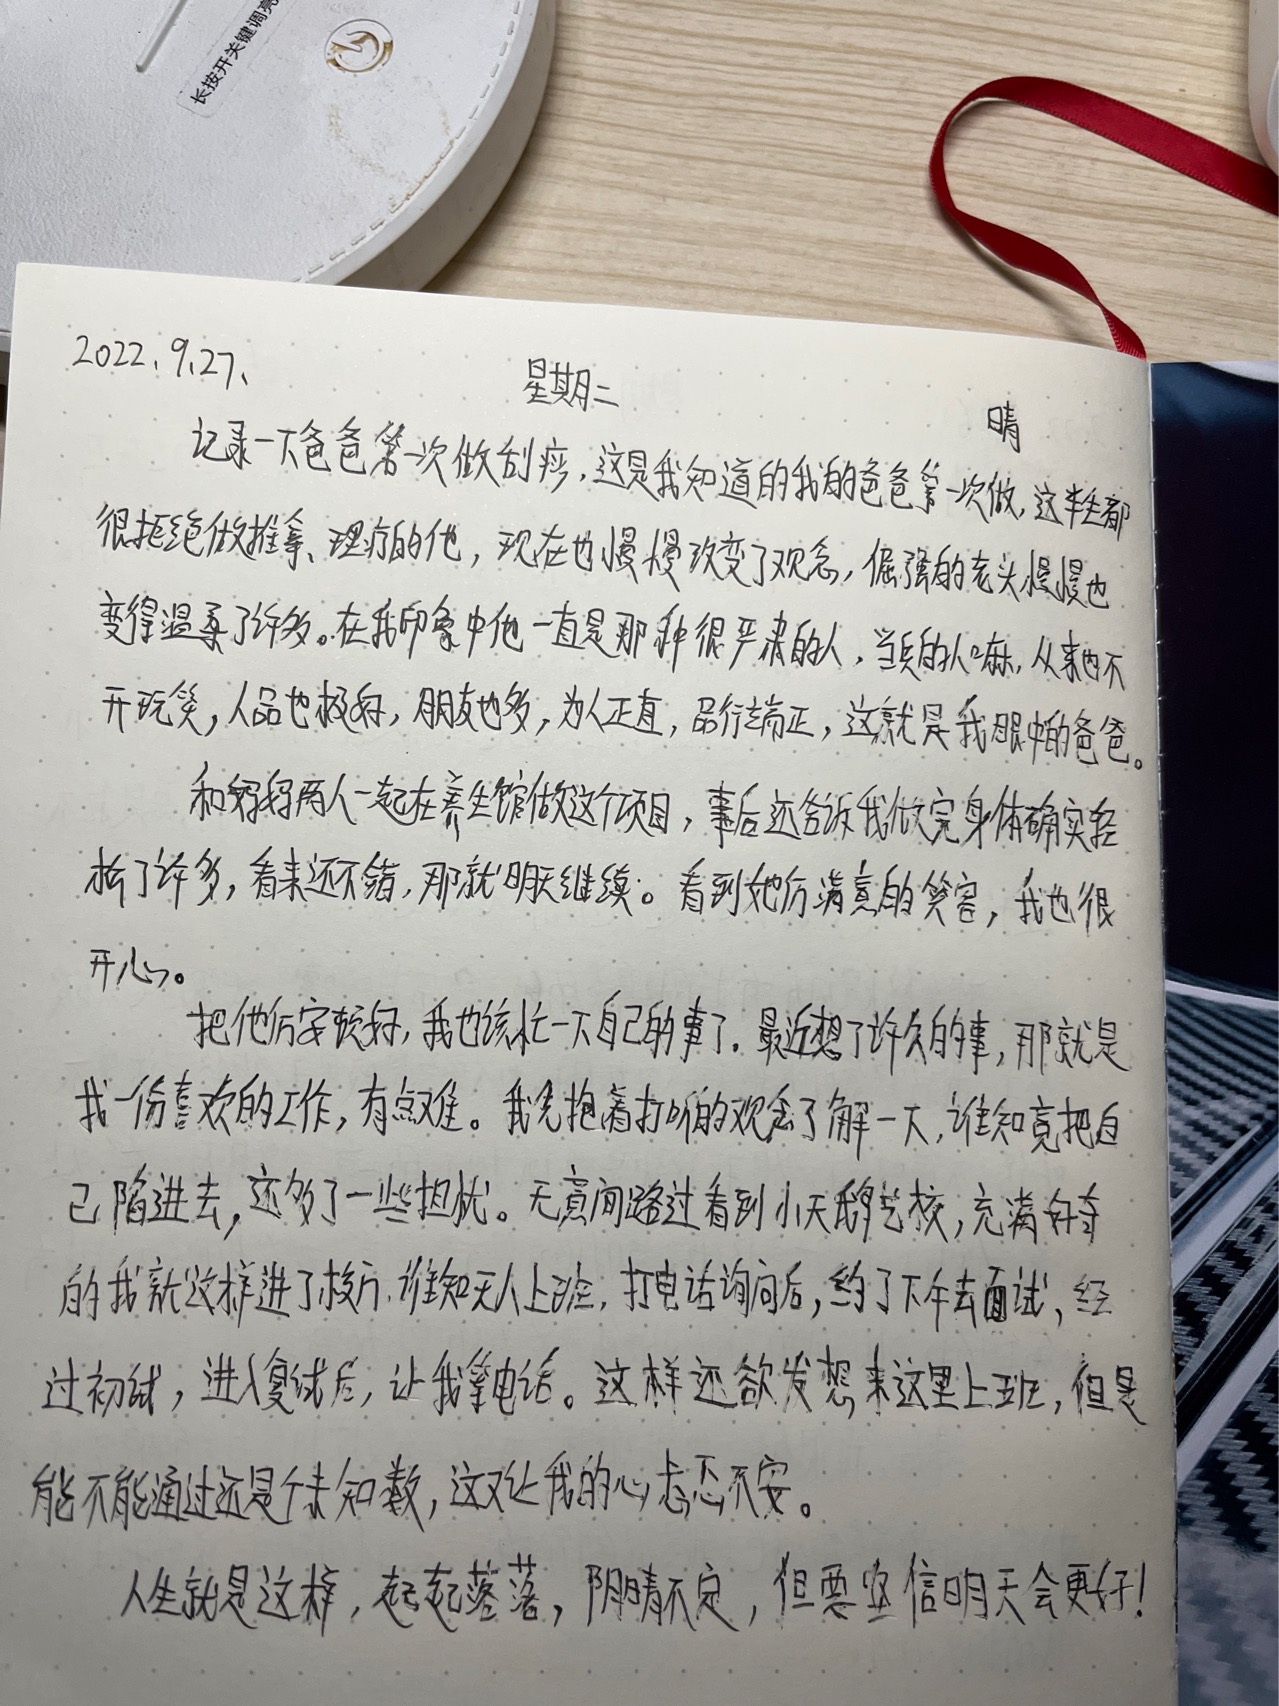 长按开关键调亮
2022.9.27.
星期二
晴
记录一下爸爸第一次做刮痧,这是我知道的我的爸爸第一次做,这半生都
很拒绝做推拿、理疗的他,现在也慢慢改变了观念,倔强的老头慢慢也
变得温柔了许多。在我印象中他一直是那种很严肃的人,当兵的人嘛,从来也不
开玩笑,人品也极好,朋友也多,为人正直,品行端正,这就是我眼中的爸爸。
和妈妈两人一起在养生馆做这个项目,事后还告诉我做完身体确实轻
松了许多,看来还不错,那就明天继续。看到她们满意的笑容,我也很
开心。
把他们安顿好,我也该忙一下自己的事了。最近想了许久的事,那就是
找一份喜欢的工作,有点难。我先抱着打听的观念了解一下,谁知竟把自
己陷进去,还多了一些担忧。无意间路过看到小天鹅艺校,充满好奇
的我就这样进了校门,谁知无人上班,打电话询问后,约了下午去面试,经
过初试,进入复试后,让我等电话。这样还欲发想来这里上班,但是
能不能通过还是个未知数,这又让我的心忐忑不安。
人生就是这样,起起落落,阴晴不定,但要坚信明天会更好!